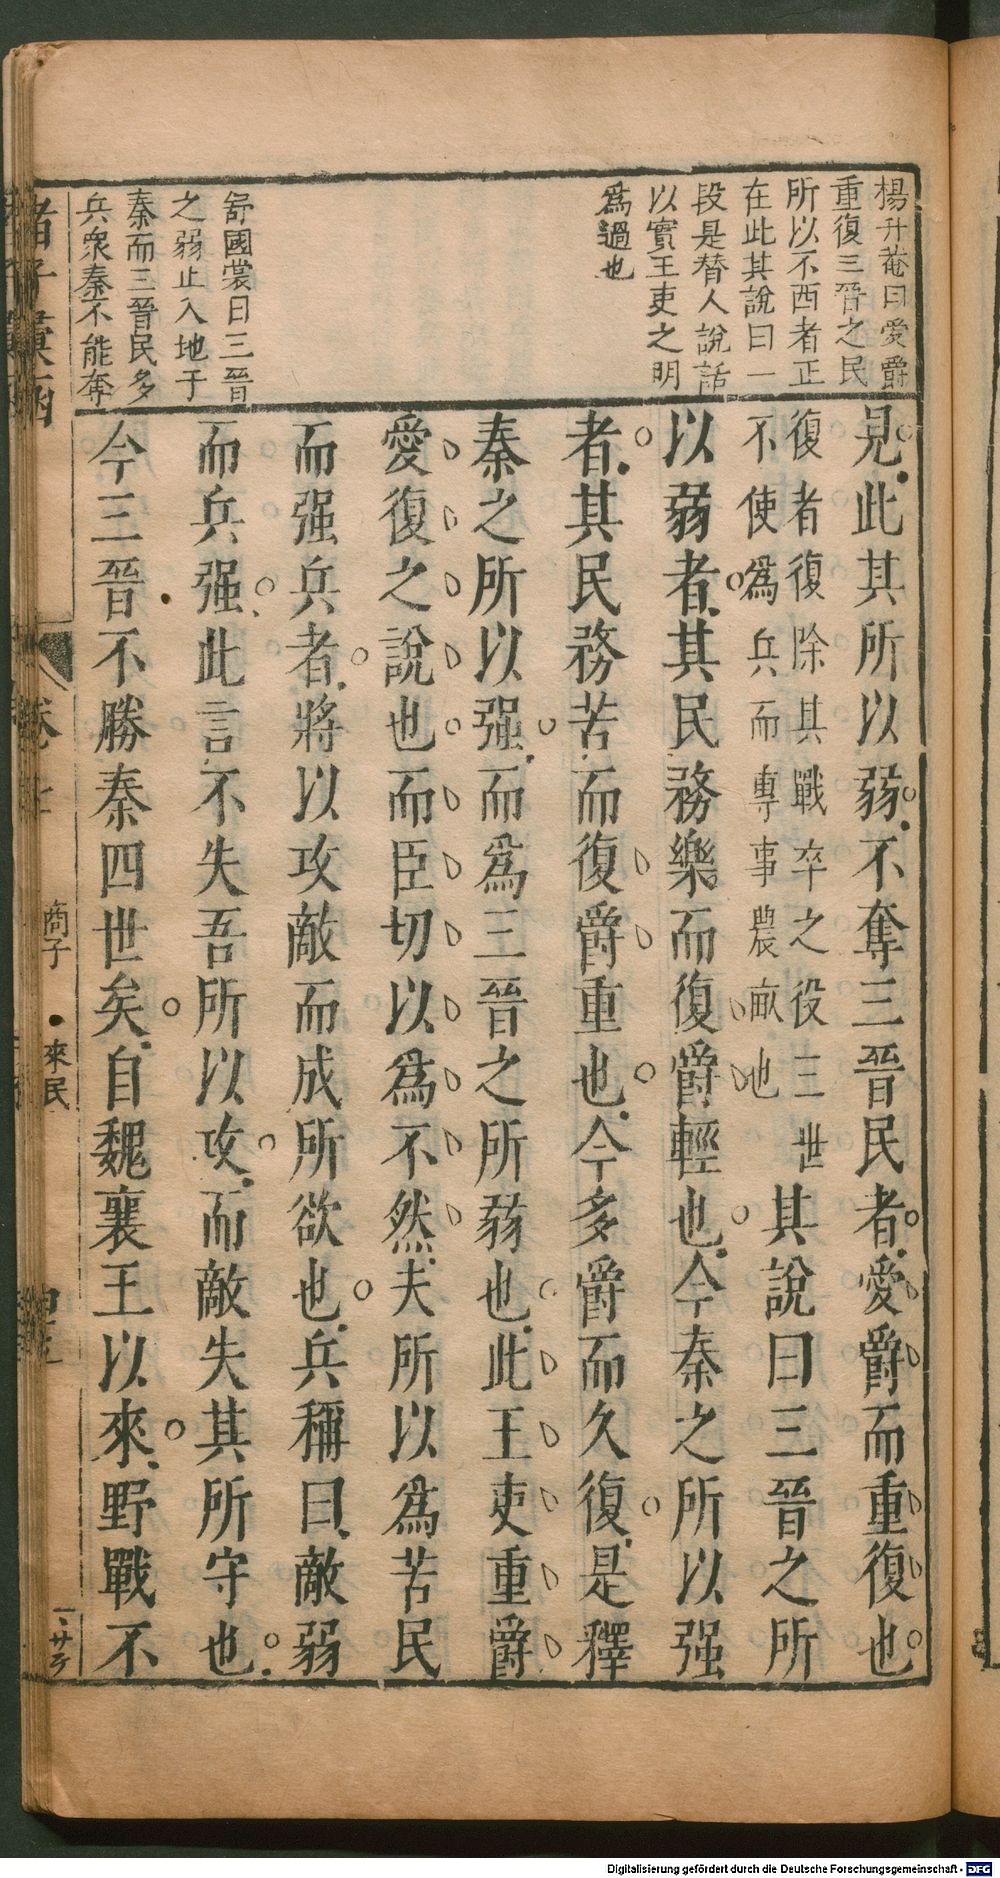 楊升菴曰愛爵
重復三晉之民
所以不西者正
在此其說曰一
段是替人說話
以實王吏之明
爲過也
舒國裳曰三晉
之弱止入地于
秦而三晉民多
兵衆秦不能奪
見此其所以弱不奪三晉民者愛爵而重復也
復者復除其戰卒之役三世
不使爲兵而專事農畝也
其說曰三晉之所
以弱者其民務樂而復爵輕也今秦之所以强
者其民務苦而復爵重也今多爵而久復是釋
秦之所以强而爲三晉之所弱也此王吏重爵
愛復之說也而臣切以爲不然夫所以爲苦民
而强兵者將以攻敵而成所欲也兵稱曰敵弱
而兵强此言不失吾所以攻而敵失其所守也
今三晉不勝秦四世矣自魏襄王以來野戰不
諸子彙函
卷七
商子
來民
Digitalisierung gefördert durch die Deutsche Forschungsgemeinschaft - DFG